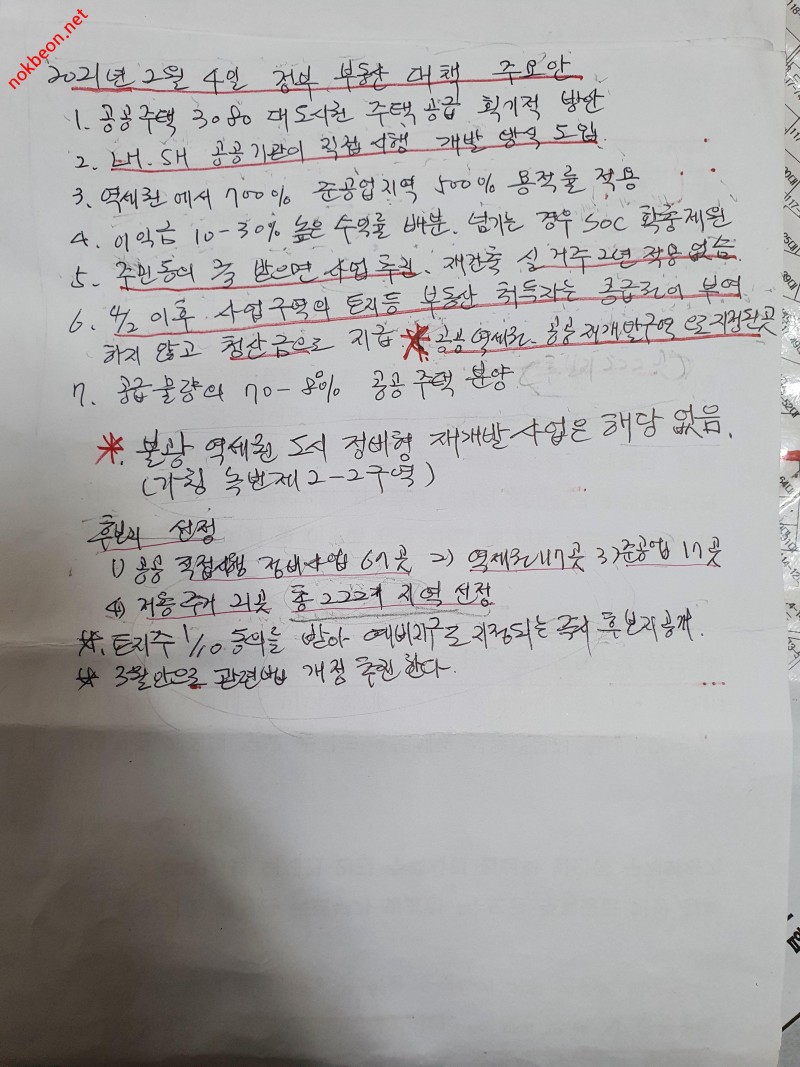 nokbeon.net
2021년 2월 4일 정부 부동산 대책 주요안
1. 공공주택 3080 대도시권 주택공급 획기적 방안
2. LH. SH 공공기관이 직접시행 개발 방식 도입.
3. 역세권에서 700% 준공업지역 500% 용적률 적용
4. 이익금 10-30% 높은 수익률 배분. 넘기는 경우 SOC 확충재원
5. 주민동의 받으면 사업 . 재건축 실거주 2년 적용 없슴.
6. 이후 사업구역의 토지등 부동산 취득자는 공급권이 부여
하지 않고 청산금으로 지급 * 공공역세권. 공공재개발구역으로 지정된곳
7. 공급물량의 70-80% 공공주택 분양
*. 불광 역세권 도시 정비형 재개발사업은 해당 없음.
(가칭 녹번제2-2구역)
후보지 선정
1) 공공 직접시행 정비사업 곳 2) 역세권 117곳 3) 준공업 17곳
4) 저층주거 21곳 총 222개 지역 선정
*. 토지주 1/10 동의를 받아 예비지구로 지정되는 즉시 후보지공개.
* 3월안으로 관련법 개정 추진한다.